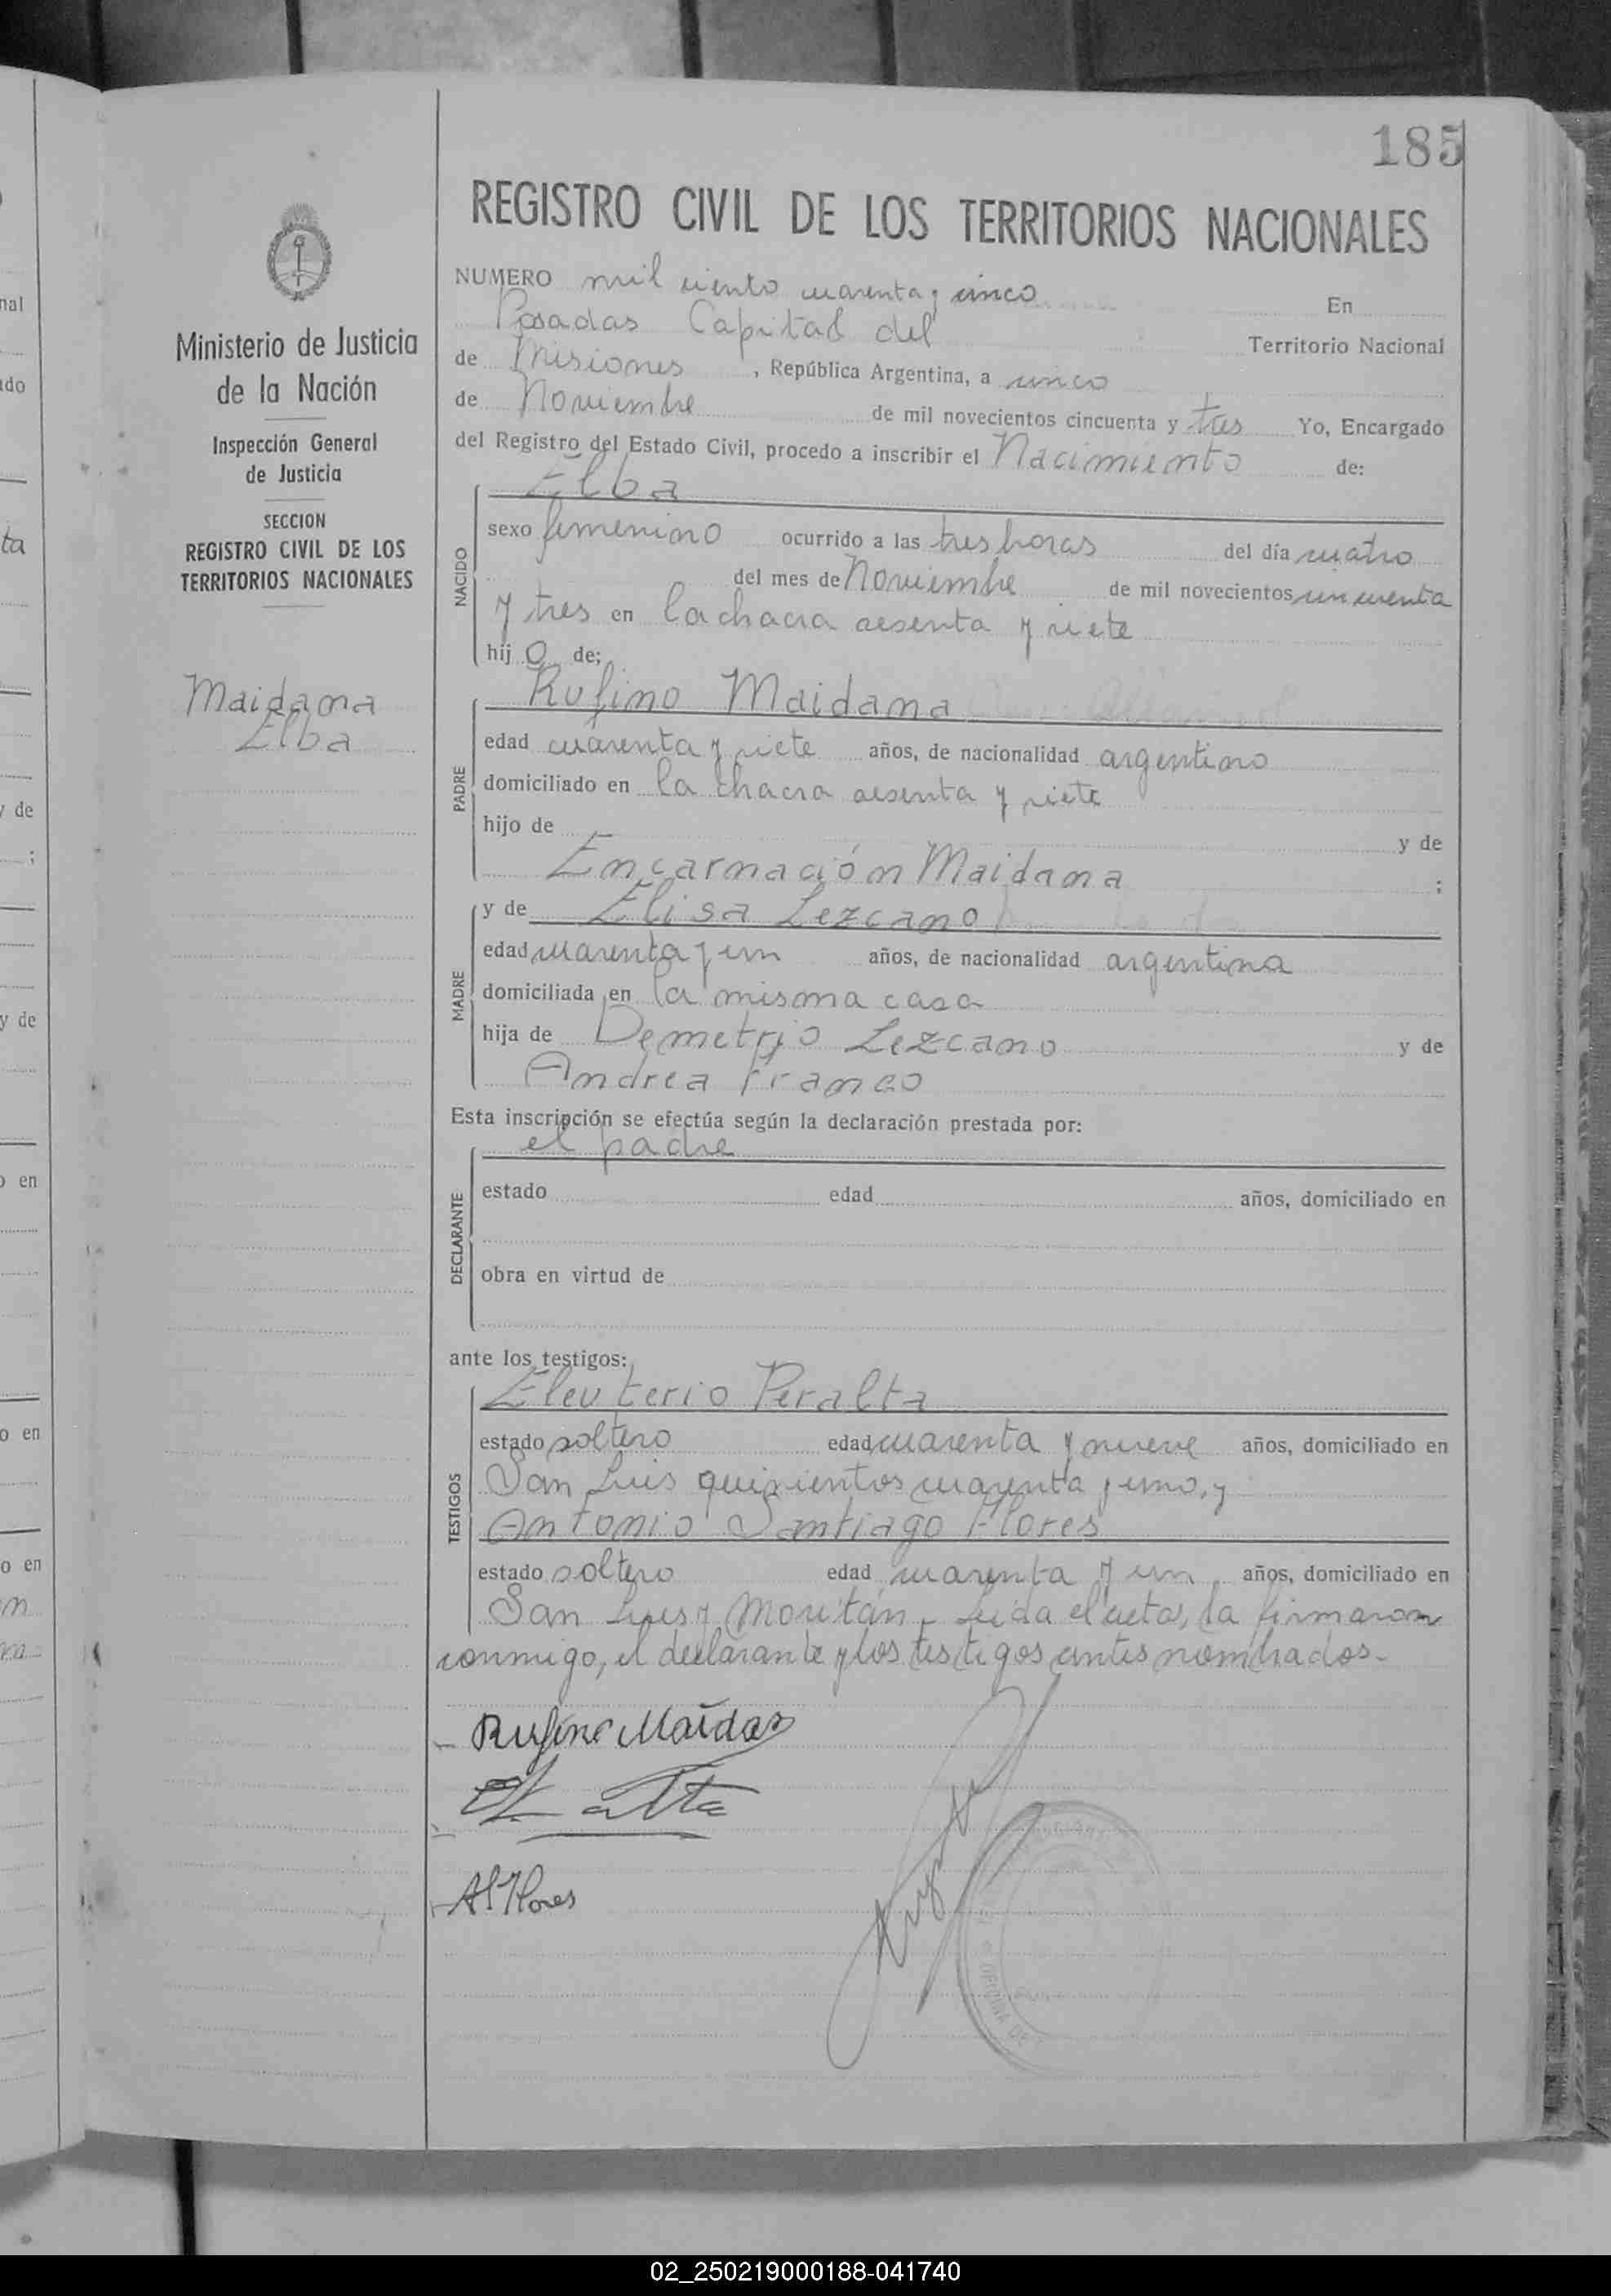 185
REGISTRO CIVIL DE LOS TERRITORIOS NACIONALES
Ministerio de Justicia
de la Nación
Inspección General
de Justicia
SECCION
REGISTRO CIVIL DE LOS
TERRITORIOS NACIONALES
Maidana
Elba
NUMERO mil ciento cuarenta y cinco En
Posadas Capital del Territorio Nacional
de Misiones, República Argentina, a cinco
de Noviembre de mil novecientos cincuenta y tres Yo, Encargado
del Registro del Estado Civil, procedo a inscribir el Nacimiento de:
Elba
NACIDO
sexo femenino ocurrido a las tres horas del día cuatro
del mes de Noviembre de mil novecientos cincuenta
y tres en la chacra sesenta y siete
hij a de;
Rufino Maidana
PADRE
edad cuarenta y siete años, de nacionalidad argentino
domiciliado en la chacra sesenta y siete
hijo de y de
Encarnación Maidana ;
y de Elisa Lezcano
MADRE
edad cuarenta y un años, de nacionalidad argentina
domiciliada en la misma casa
hija de Demetrio Lezcano y de
Andrea Franco
Esta inscripción se efectúa según la declaración prestada por:
el padre
DECLARANTE
estado edad años, domiciliado en
obra en virtud de
ante los testigos:
Eleuterio Peralta
TESTIGOS
estado soltero edad cuarenta y nueve años, domiciliado en
San Luis quinientos cuarenta y uno, y
Antonio Santiago Flores
estado soltero edad cuarenta y un años, domiciliado en
San Luis y Moritán - Leída el acta, la firmaron
conmigo, el declarante y los testigos antes nombrados.-
Rufino Maidana
A S Flores
OFICINA DE
02_250219000188-041740